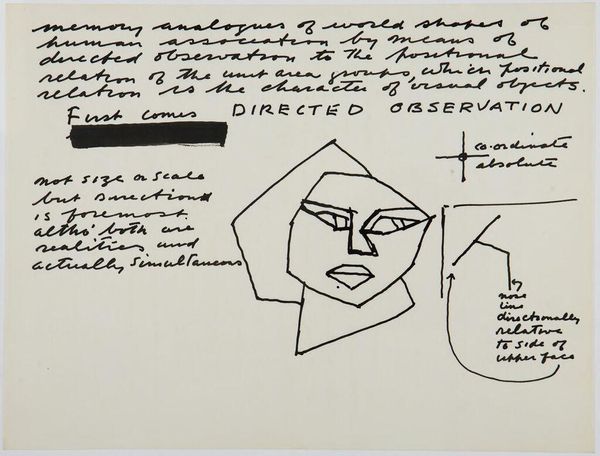 memory analogues of world shapes of
human association by means of
directed observation to the positional
relation of the unit area groups, which positional
relation is the character of visual objects.
First comes DIRECTED OBSERVATION
co-ordinate
absolute
not size or scale
but direction
is foremost.
altho' both are
realities and
actually simultaneous
nose
line
directionally
relative
to side of
upper face